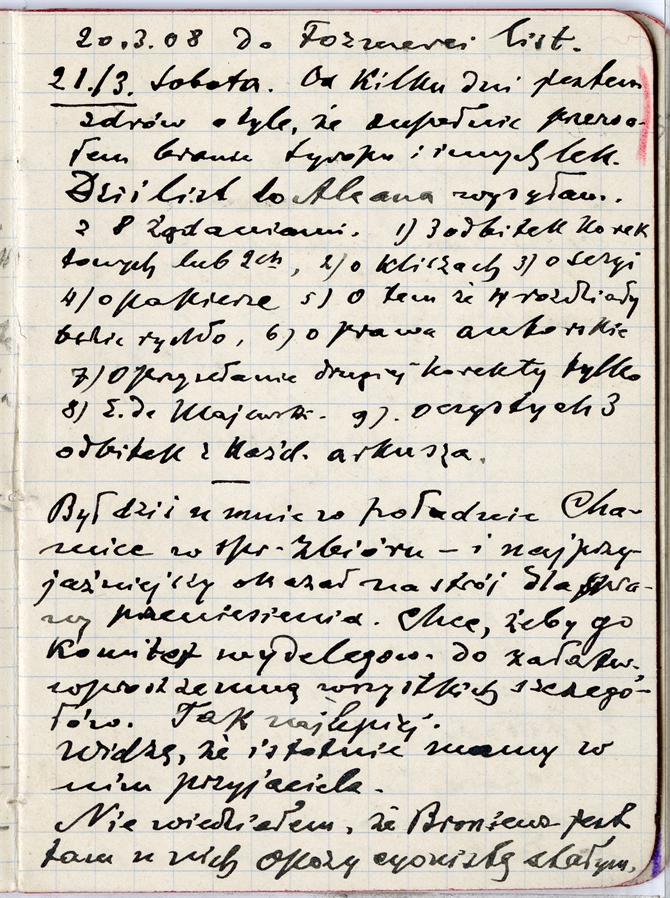 20.3.08 do list.
21./3. Sobota. Od kilku dni jestem
zdrów o tyle, że zupełnie przesta-
łem branie tyropu i innych lek.
Dziś list do Alcana wysyłam.
z 8 żądaniami. 1) 3 odbitek korek
towych lub 2ch, 2) o kliszach 3) o serji
4) o papierze 5) o tem że 4 rozdziały
będzie rychło, 6) o prawa autorskie
7) O przysłanie drugiej korekty tylko
8) E. de Majewski. 9). o czystych 3
odbitek z każd. arkusza.
Był dziś u mnie w południe Cha-
mice w spr. zbioru – i najprzy-
jaźniejszy okazał nastrój dla spra-
wy przeniesienia. Chce, żeby go
Komitet wydelegow. do załatw.
wprost ze mną wszystkich szczegó-
łów. Tak najlepiej.
Widzę, że istotnie mamy w
nim przyjaciela.
Nie wiedziałem, że jest
tam u nich opozycyonistą stałym.